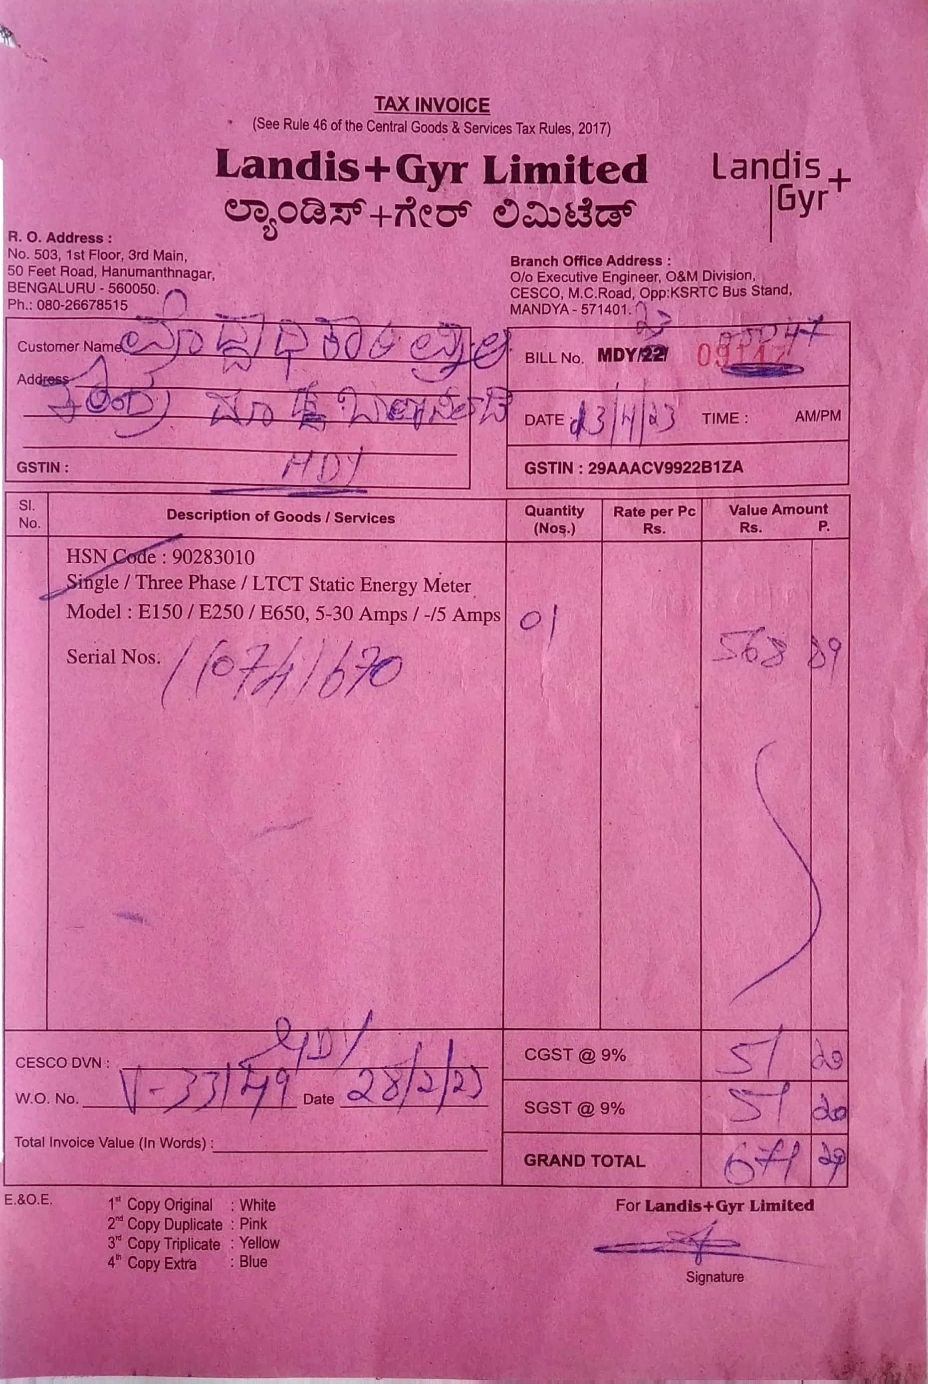 TAX INVOICE
(See Rule 46 of the Central Goods & Services Tax Rules, 2017)
Landis+Gyr Limited
ಲ್ಯಾಂಡಿಸ್+ಗೇರ್ ಲಿಮಿಟೆಡ್
Landis+
Gyr
R. O. Address :
No. 503, 1st Floor, 3rd Main,
50 Feet Road, Hanumanthnagar,
BENGALURU - 560050.
Ph.: 080-26678515
Branch Office Address :
O/o Executive Engineer, O&M Division,
CESCO, M.C.Road, Opp:KSRTC Bus Stand,
MANDYA - 571401.
Customer Name
Address
MDY
GSTIN :
23
BILL No. MDY/22/
DATE : 13/4/23 TIME : AM/PM
GSTIN : 29AAACV9922B1ZA
Sl. No. Description of Goods / Services Quantity (Nos.) Rate per Pc Rs. Value Amount Rs. P.
HSN Code : 90283010
Single / Three Phase / LTCT Static Energy Meter
Model : E150 / E250 / E650, 5-30 Amps / -/5 Amps 01
Serial Nos. 110741670 568 89
CESCO DVN : MDY
W.O. No. V-33149 Date 28/2/23
Total Invoice Value (In Words) :
CGST @ 9% 51 20
SGST @ 9% 51 20
GRAND TOTAL 671 29
E.&O.E.
1st Copy Original : White
2nd Copy Duplicate : Pink
3rd Copy Triplicate : Yellow
4th Copy Extra : Blue
For Landis+Gyr Limited
Signature